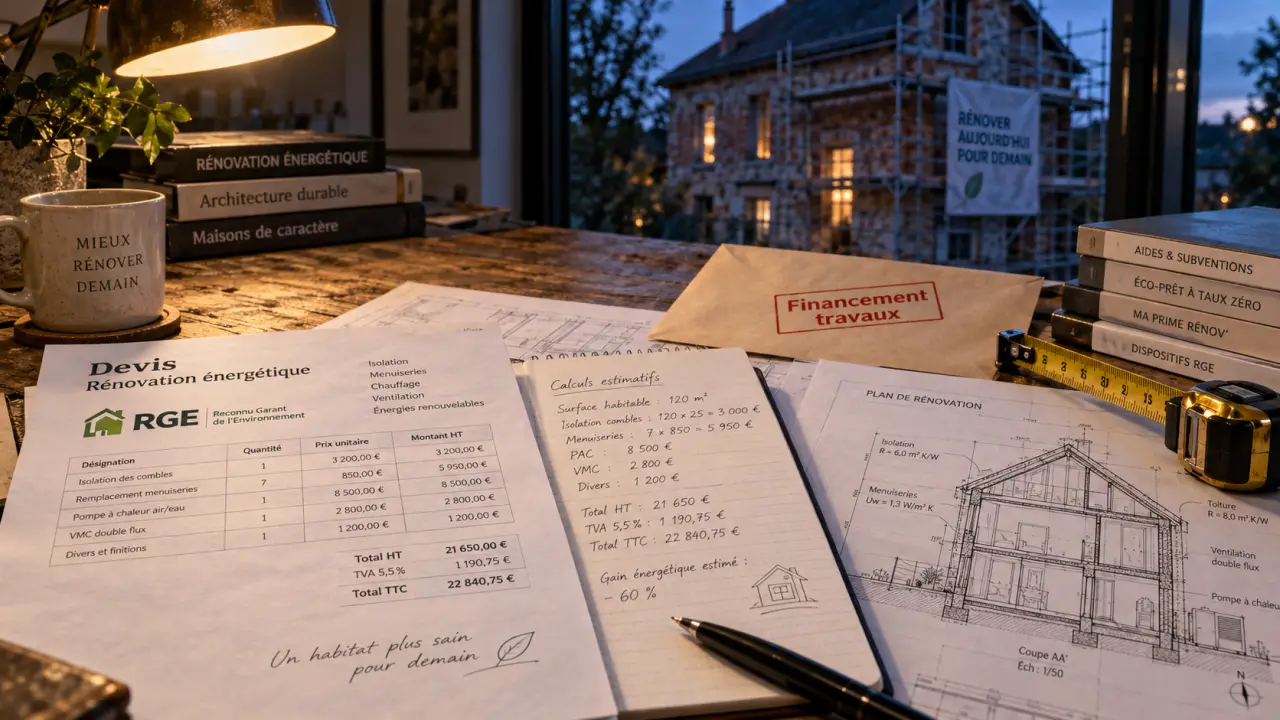 RÉNOVATION ÉNERGÉTIQUE
Architecture durable
Maisons de caractère
MIEUX
RÉNOVER
DEMAIN
RÉNOVER
AUJOURD'HUI
POUR DEMAIN
Financement
travaux
AIDES & SUBVENTIONS
ÉCO-PRÊT À TAUX ZÉRO
MA PRIME RÉNOV'
DISPOSITIFS RGE
Devis
Rénovation énergétique
Isolation
Menuiseries
Chauffage
Ventilation
Énergies renouvelables
RGE
Reconnu Garant
de l'Environnement
Désignation Quantité Prix unitaire Montant HT
Isolation des combles 1 3 200,00 € 3 200,00 €
Remplacement menuiseries 7 850,00 € 5 950,00 €
Pompe à chaleur air/eau 1 8 500,00 € 8 500,00 €
VMC double flux 1 2 800,00 € 2 800,00 €
Divers et finitions 1 1 200,00 € 1 200,00 €
Total HT 21 650,00 €
TVA 5,5 % 1 190,75 €
Total TTC 22 840,75 €
Un habitat plus sain
pour demain
Calculs estimatifs
Surface habitable : 120 m²
Isolation combles : 120 x 25 = 3 000 €
Menuiseries : 7 x 850 = 5 950 €
PAC : 8 500 €
VMC : 2 800 €
Divers : 1 200 €
Total HT : 21 650 €
TVA 5,5% : 1 190,75 €
Total TTC : 22 840,75 €
Gain énergétique estimé :
– 60 %
PLAN DE RÉNOVATION
Isolation
R = 6,0 m².K/W
Menuiseries
Uw = 1,3 W/m².K
Toiture
R = 8,0 m².K/W
Ventilation
double flux
Pompe à chaleu
Coupe AA'
Éch : 1/50
N